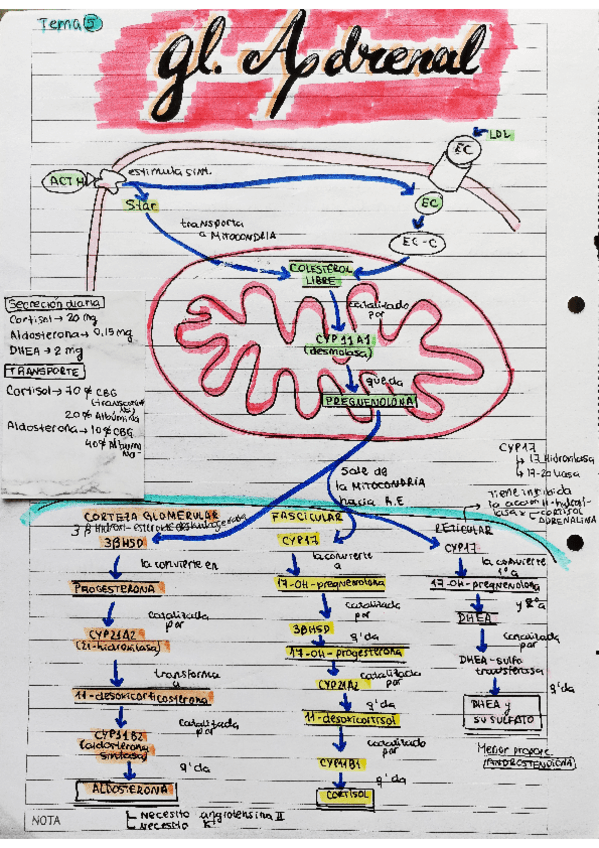 Tema 5
gl. Adrenal
LDL
EC
ACTH
estimula sínt.
Star
EC
transporta
a MITOCONDRIA
EC-C
COLESTEROL
LIBRE
catalizado
por
CYP11A1
(desmolasa)
queda
PREGNENOLONA
Secreción diaria
Cortisol → 20 mg
Aldosterona → 0,15 mg
DHEA → 2 mg
TRANSPORTE
Cortisol → 70 % CBG
20 % Albúmina
Aldosterona → 10 % CBG
40 % Albúmi
na
sale de
la MITOCONDRIA
hacia R.E
CYP17
↳ 17 Hidroxilasa
↳ 17-20 Liasa
Tiene inhibida
CORTISOL
ADRENALINA
CORTEZA GLOMERULAR
3βHSD
la convierte en
PROGESTERONA
catalizada
por
CYP21A2
(21-hidroxilasa)
transforma
a
11-desoxicorticosterona
catalizada
por
CYP11B2
(aldosterona
sintasa)
q' da
ALDOSTERONA
FASCICULAR
CYP17
la convierte
a
17-OH-pregnenolona
catalizada
por
3βHSD
q' da
17-OH-progesterona
CYP21A2
catalizada
por
q' da
11-desoxicortisol
catalizado
por
CYP11B1
q' da
CORTISOL
RETICULAR
CYP17
la convierte
1º a
17-OH-pregnenolona
y 2º a
DHEA
catalizada
por
DHEA-sulfo
transferasa
q' da
DHEA y
SU SULFATO
Menor proporc.
ANDROSTENDIONA
NOTA
Necesito angiotensina II
Necesito K⁺